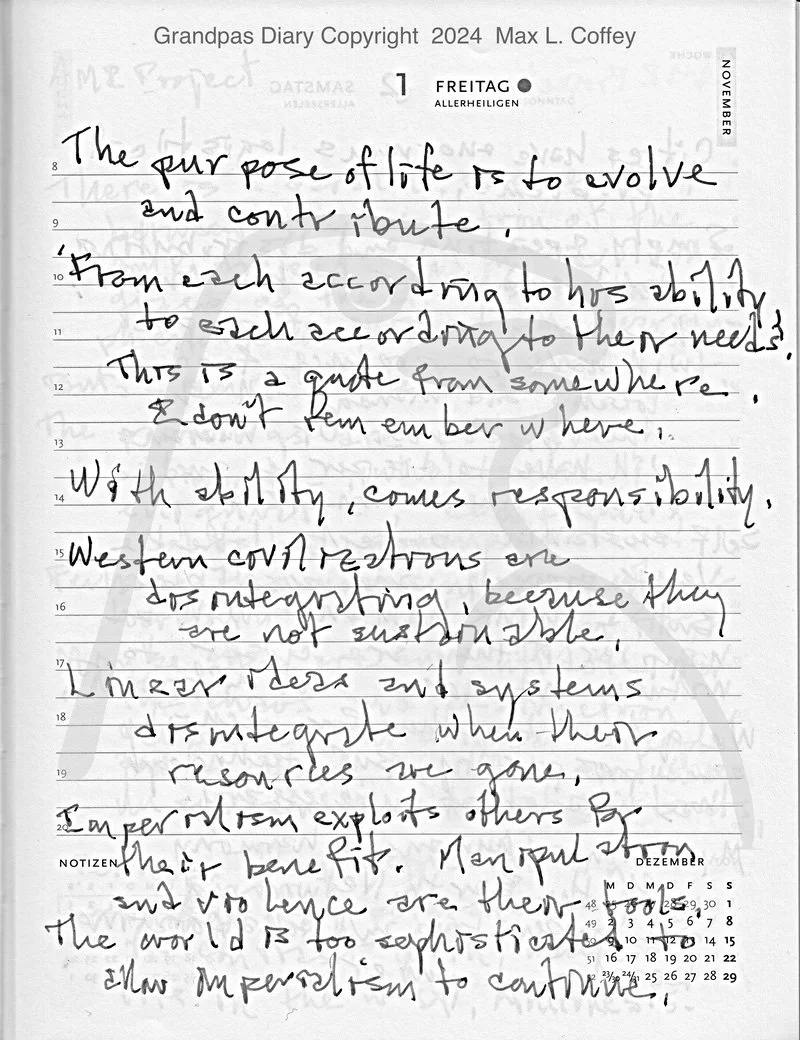 Grandpas Diary Copyright 2024 Max L. Coffey
1 FREITAG
ALLERHEILIGEN
NOVEMBER
8 The purpose of life is to evolve
and contribute.
9
10 "From each according to his ability
to each according to their needs".
11
This is a quote from somewhere.
12
I don't remember where.
13
With ability, comes responsibility.
14
15 Western civilizations are
disintegrating, because they
16
are not sustainable.
17 Linear ideas and systems
18
disintegrate when their
19 resources are gone.
Imperialism exploits others for
20
NOTIZEN their benefit. Manipulation
DEZEMBER
and violence are their tools.
The world is too sophisticated to
allow imperialism to continue.
M D M D F S S
48 25 26 27 28 29 30 1
49 2 3 4 5 6 7 8
50 9 10 11 12 13 14 15
51 16 17 18 19 20 21 22
52 23/30 24/31 25 26 27 28 29